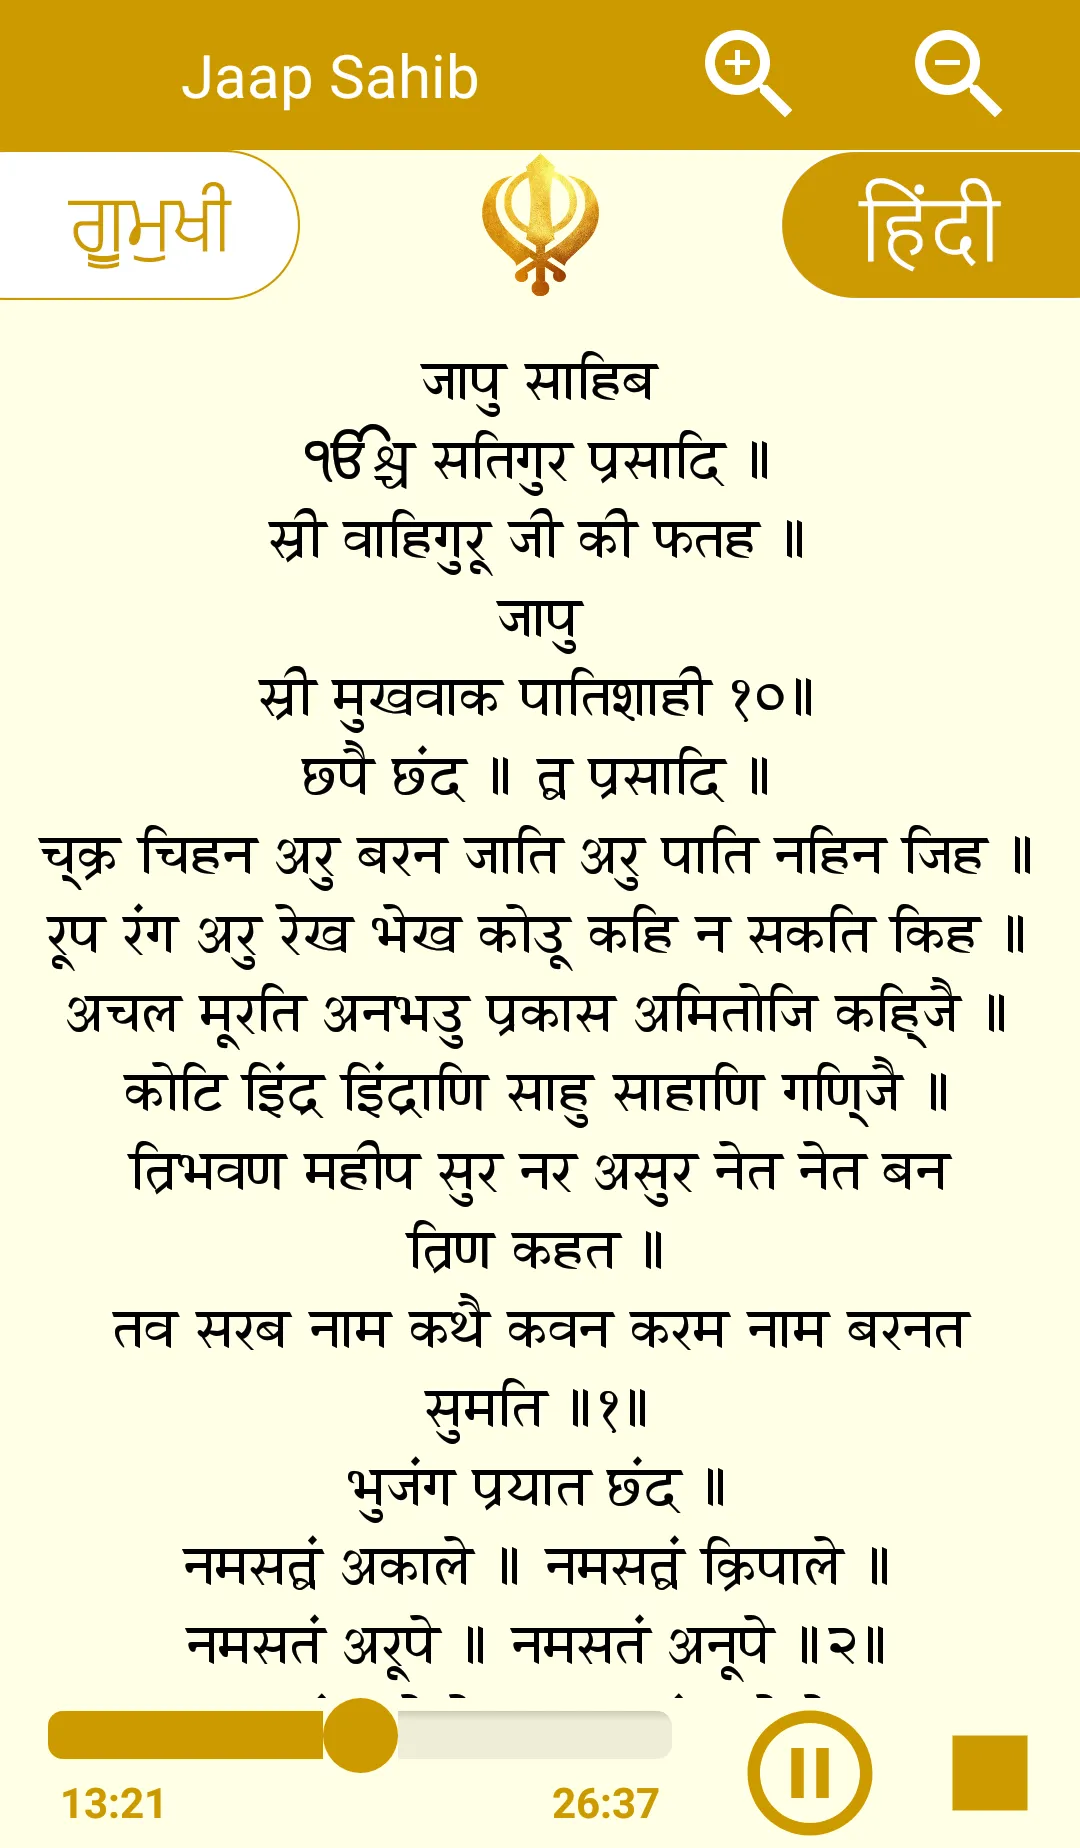 Jaap Sahib
ਗੁਰੂਮੁਖੀ
हिंदी
जापु साहिब
ੴ सतिगुर प्रसादि ॥
स्री वाहिगुरू जी की फतह ॥
जापु
स्री मुखवाक पातिशाही १०॥
छपै छंद ॥ त्व प्रसादि ॥
च्क्र चिहन अरु बरन जाति अरु पाति नहिन जिह ॥
रूप रंग अरु रेख भेख कोउू कहि न सकति किह ॥
अचल मूरति अनभउु प्रकास अमितोजि कहि्जै ॥
कोटि इिंद्र इिंद्राणि साहु साहाणि गणि्जै ॥
त्रिभवण महीप सुर नर असुर नेत नेत बन
त्रिण कहत ॥
तव सरब नाम कथै कवन करम नाम बरनत
सुमति ॥१॥
भुजंग प्रयात छंद ॥
नमसत्वं अकाले ॥ नमसत्वं क्रिपाले ॥
नमसतं अरूपे ॥ नमसतं अनूपे ॥२॥
13:21
26:37